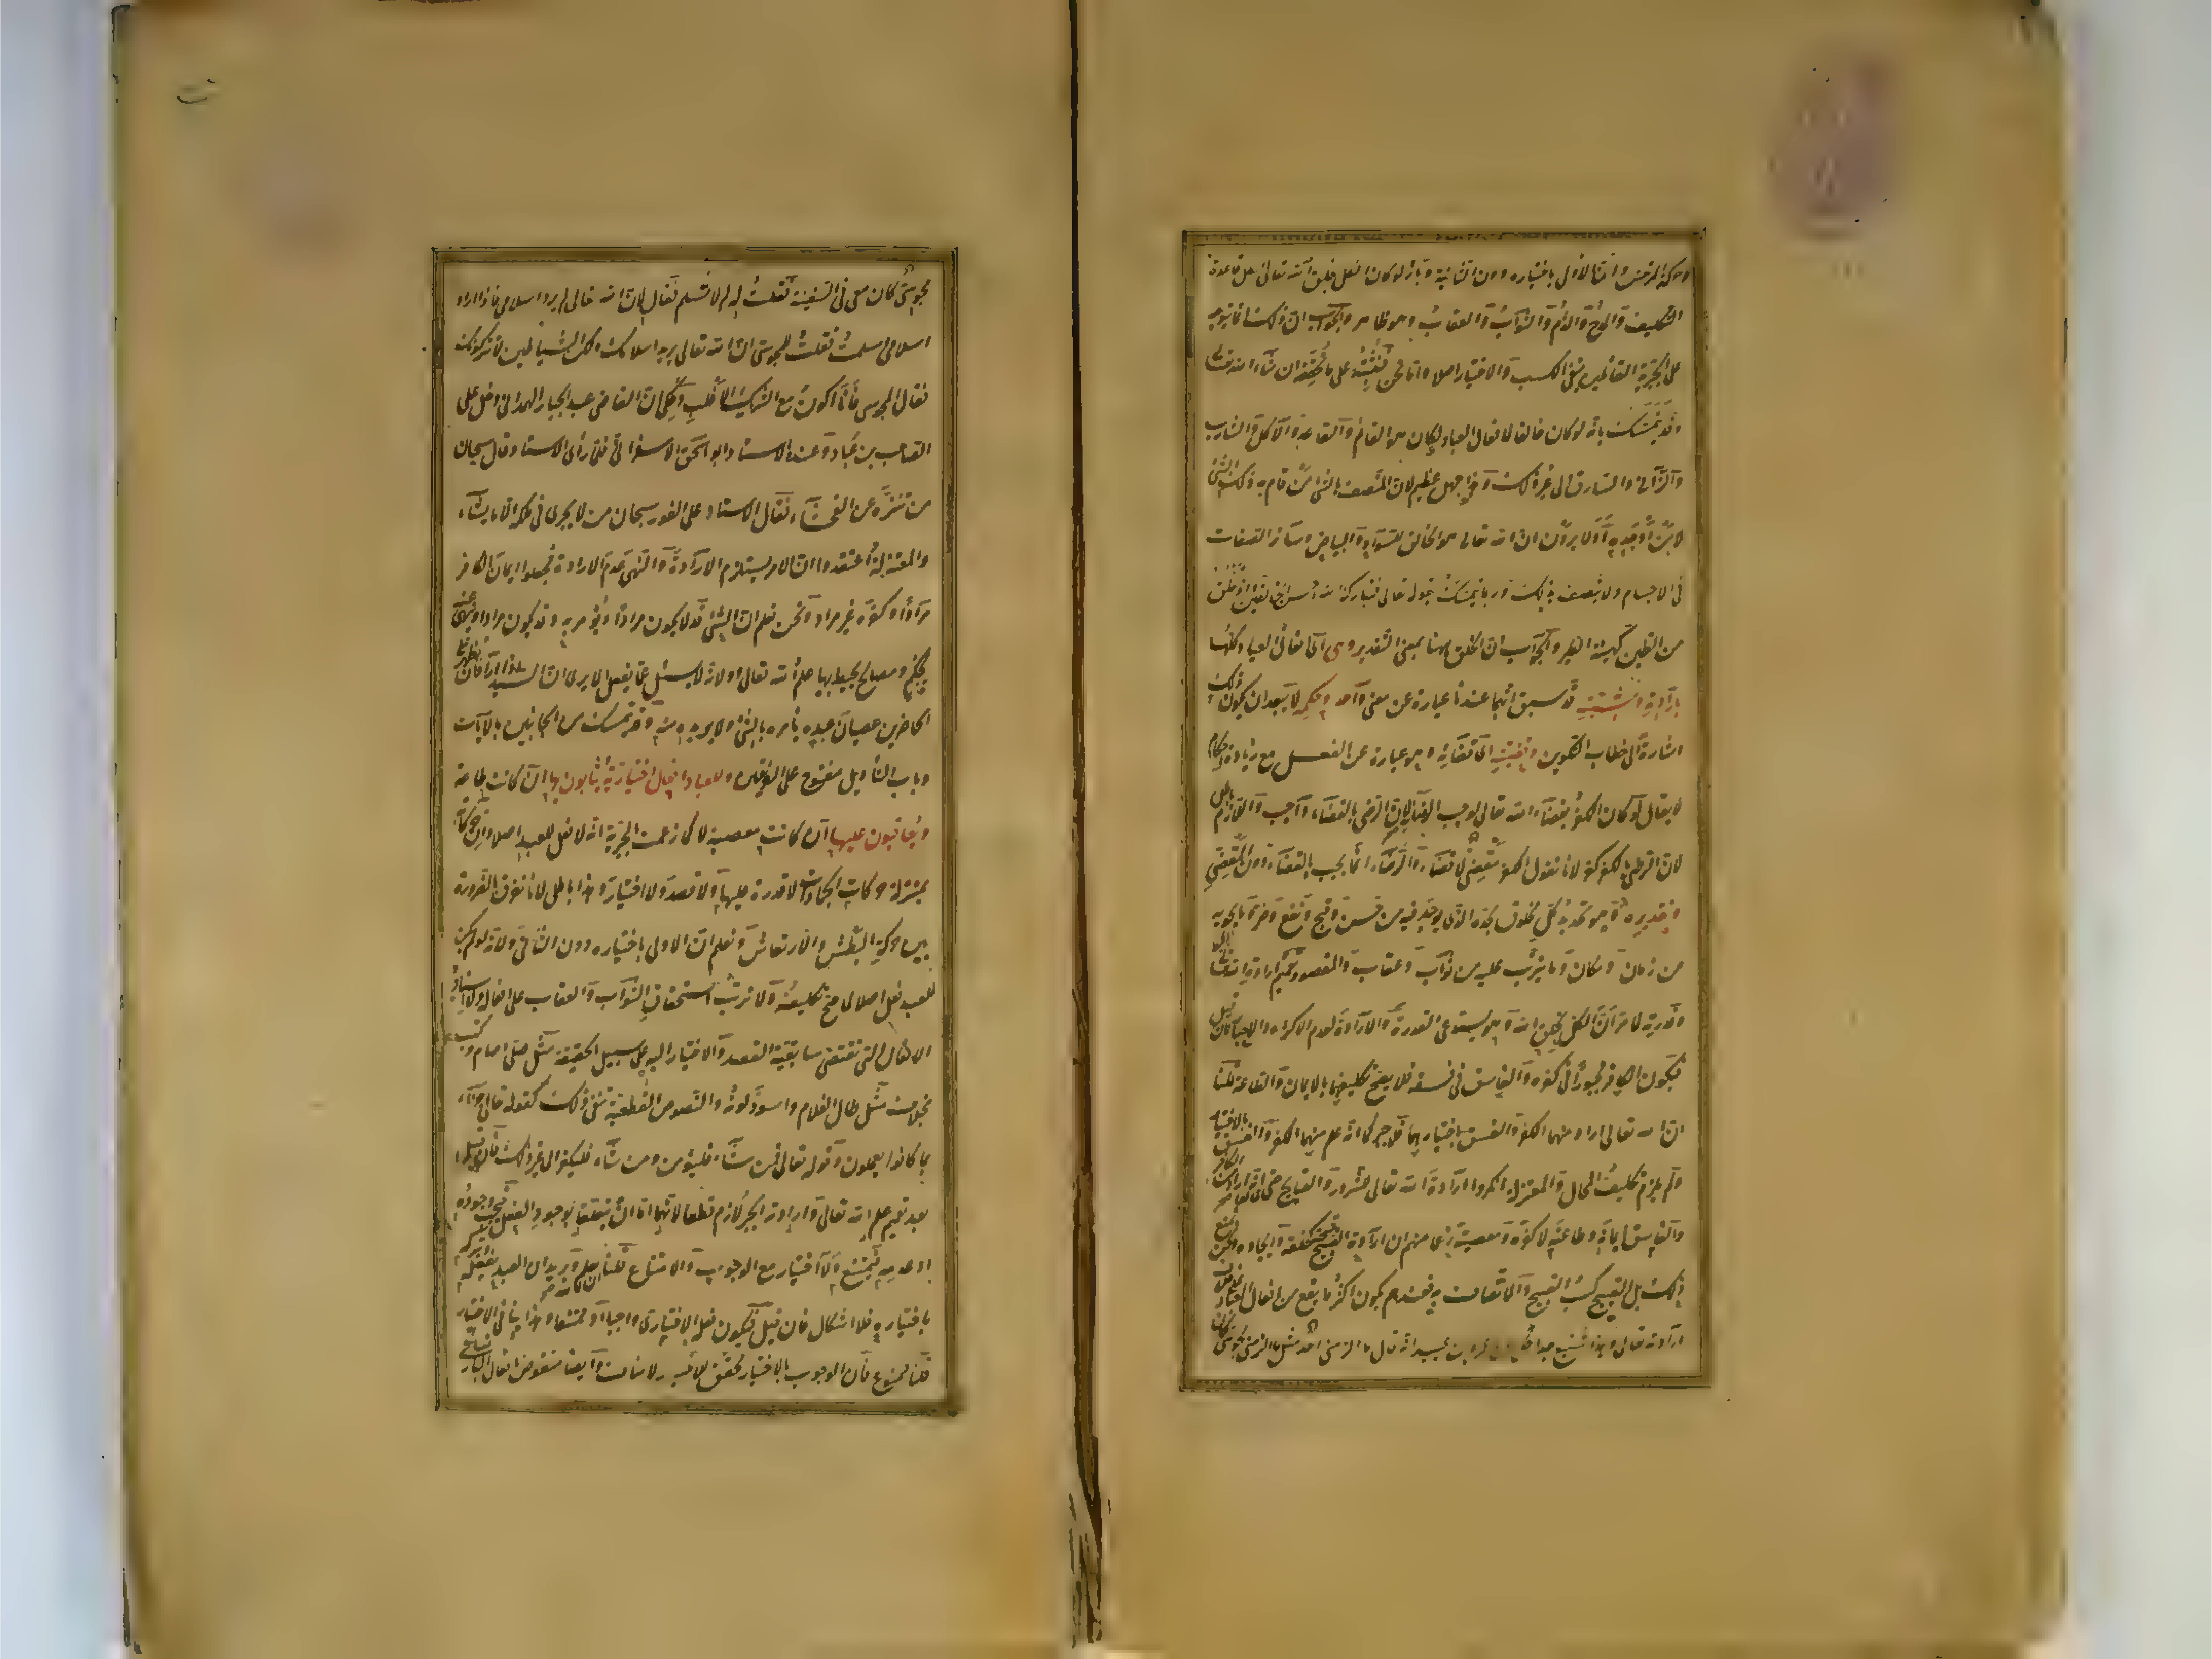 وحركة المرتعش وان الاولى باختياره دون الثانية وبانه لو كان الكل بخلق الله تعالى لبطل قاعدة
التكليف والمدح والذم والثواب والعقاب وهو ظاهر والجواب ان ذلك انما يتوجه
على الجبرية القائلين بنفى الكسب والاختيار اصلا واما نحن فنثبته على ما نحققه ان شاء الله تعالى
وقد يتمسك بانه لو كان خالقا لافعال العباد لكان هو القائم والقاعد والآكل والشارب
والزانى والسارق الى غير ذلك وهذا جهل عظيم لان المتصف بالشئ من قام به ذلك الشئ
لا من اوجده اولا يرون ان الله تعالى هو الخالق للسواد والبياض وسائر الصفات
فى الاجسام ولا يتصف بذلك وربما يتمسك بقوله تعالى فتبارك الله احسن الخالقين واذ تخلق
من الطين كهيئة الطير والجواب ان الخلق ههنا بمعنى التقدير وهى اى افعال العباد كلها
بارادته ومشيته قد سبق انهما عندنا عبارة عن معنى واحد وحكمه لا يبعد ان يكون ذلك
اشارة الى خطاب التكوين وقضيته اى قضائه وهو عبارة عن الفعل مع زيادة احكام
لا يقال لو كان الكفر بقضاء الله تعالى لوجب الرضا به لان الرضى بالقضاء واجب واللازم باطل
لان الرضى بالكفر كفر لانا نقول الكفر مقضى لا قضاء والرضاء انما يجب بالقضاء دون المقضى
وتقديره وهو تحديد كل مخلوق بحده الذى يوجد فيه من حسن وقبح ونفع وضر وما يحويه
من زمان ومكان وما يترتب عليه من ثواب وعقاب والمقصود تعميم ارادة الله تعالى
وقدرته لما مر ان الكل بخلق الله وهو يستدعى القدرة والارادة لعدم الاكراه والاجبار فان قيل
فيكون الكافر مجبورا فى كفره والفاسق فى فسقه فلا يصح تكليفهما بالايمان والطاعة قلنا
ان الله تعالى اراد منهما الكفر والفسق باختيارهما فلا جبر كما انه علم منهما الكفر والفسق بالاختيار
ولم يلزم تكليف المحال والمعتزلة انكروا ارادة الله تعالى للشرور والقبايح حتى قالوا انه اراد من الكافر
والفاسق ايمانه وطاعته لا كفره ومعصيته زعما منهم ان ارادة القبيح قبيحة كخلقه وايجاده ونحن نمنع
ذلك بل القبيح كسب القبيح والاتصاف به فعندهم يكون اكثر ما يقع من افعال العباد على خلاف
ارادة تعالى وهذا شنيع جدا حكى عن عمرو بن عبيد انه قال ما الزمنى احد مثل ما الزمنى مجوسى
مجوسى كان معى فى السفينة فقلت له لم لا تسلم فقال لان الله تعالى لم يرد اسلامى فاذا اراد
اسلامى اسلمت فقلت للمجوسى ان الله تعالى يريد اسلامك ولكن الشياطين لا يتركونك
فقال المجوسى فانا اكون مع الشريك الاغلب وحكى ان القاضى عبد الجبار الهمدانى دخل على
الصاحب بن عباد وعنده الاستاد ابو اسحق الاسفرائنى فلما رأى الاستاد قال سبحان
من تنزه عن الفحشاء فقال الاستاد على الفور سبحان من لا يجرى فى ملكه الا ما يشاء
والمعتزلة اعتقدوا ان الامر يستلزم الارادة والنهى عدم الارادة فجعلوا ايمان الكافر
مرادا وكفره غير مراد ونحن نعلم ان الشئ قد لا يكون مرادا ويؤمر به وقد يكون مرادا وينهى عنه
لحكم ومصالح يحيط بها علم الله تعالى او لانه لا يسئل عما يفعل الا يرى ان السيد اذا اراد ان يظهر على
الحاضرين عصيان عبده يأمره بالشئ ولا يريده منه وقد تمسك من الجانبين بالآيات
وباب التأويل مفتوح على الفريقين وللعباد افعال اختيارية يثابون بها ان كانت طاعة
ويعاقبون عليها ان كانت معصية لا كما زعمت الجبرية انه لا فعل للعبد اصلا وان حركاته
بمنزلة حركات الجمادات لا قدرة عليها ولا قصد ولا اختيار وهذا باطل لانا نفرق بالضرورة
بين حركة البطش والارتعاش ونعلم ان الاولى باختياره دون الثانى ولانه لو لم يكن
للعبد فعل اصلا لما صح تكليفه ولا ترتب استحقاق الثواب والعقاب على افعاله ولا اسناد
الافعال التى تقتضى سابقية القصد والاختيار اليه على سبيل الحقيقة مثل صلى وصام وكتب
بخلاف مثل طال الغلام واسود لونه والنصوص القطعية تنفى ذلك كقوله تعالى جزاء
بما كانوا يعملون وقوله تعالى فمن شاء فليؤمن ومن شاء فليكفر الى غير ذلك فان قيل
بعد تعميم علم الله تعالى وارادته الجبر لازم قطعا لانهما اما ان يتعلقا بوجود الفعل فيجب وجوده
او عدمه فيمتنع ولا اختيار مع الوجوب والامتناع قلنا يعلم ويريد ان العبد يفعله او يتركه
باختياره فلا اشكال فان قيل فيكون فعله الاختيارى واجبا او ممتنعا وهذا ينافى الاختيار
قلنا ممنوع فان الوجوب بالاختيار محقق للاختيار لا مناف وايضا منقوض بافعال البارى تعالى